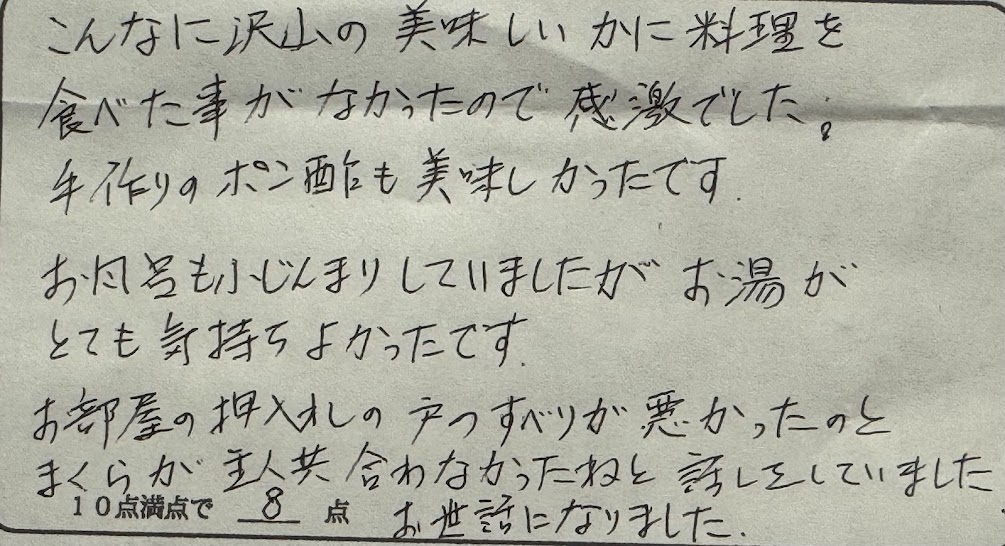 こんなに沢山の美味しいかに料理を
食べた事がなかったので感激でした。
手作りのポン酢も美味しかったです.
お風呂も小じんまりしていましたがお湯が
とても気持ちよかったです.
お部屋の押入れの戸のすべりが悪かったのと
まくらが主人共合わなかったねと話しをしていました
10点満点で 8 点 お世話になりました.